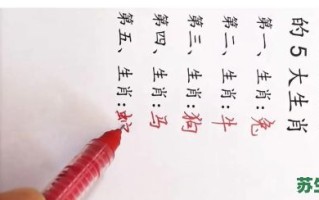 的5大生肖
第一、生肖:兔
第二、生肖:牛
第三、生肖:狗
第四、生肖:马
第五、生肖:蛇
苏生